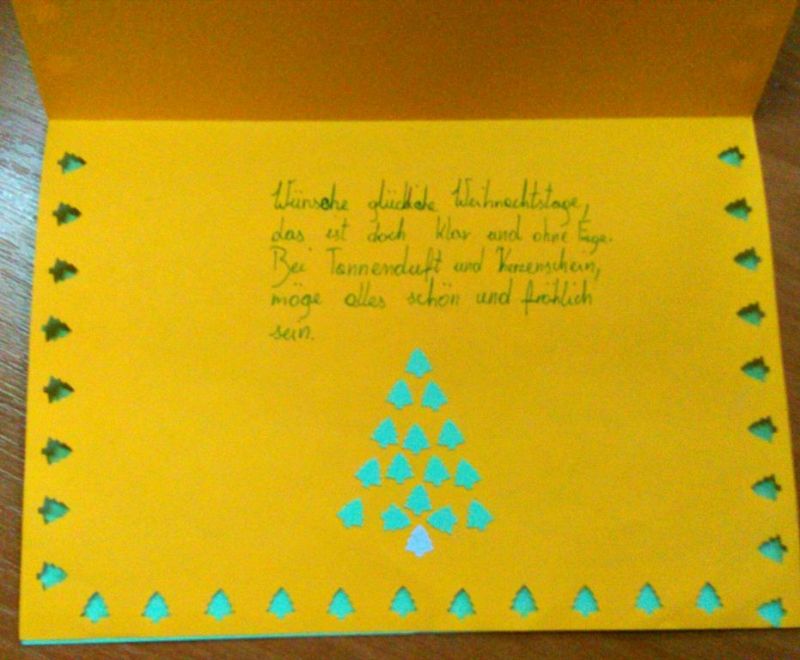 Wünsche glückliche Weihnachtstage,
das ist doch klar und ohne Frage.
Bei Tannenduft und Kerzenschein,
möge alles schön und fröhlich
sein.